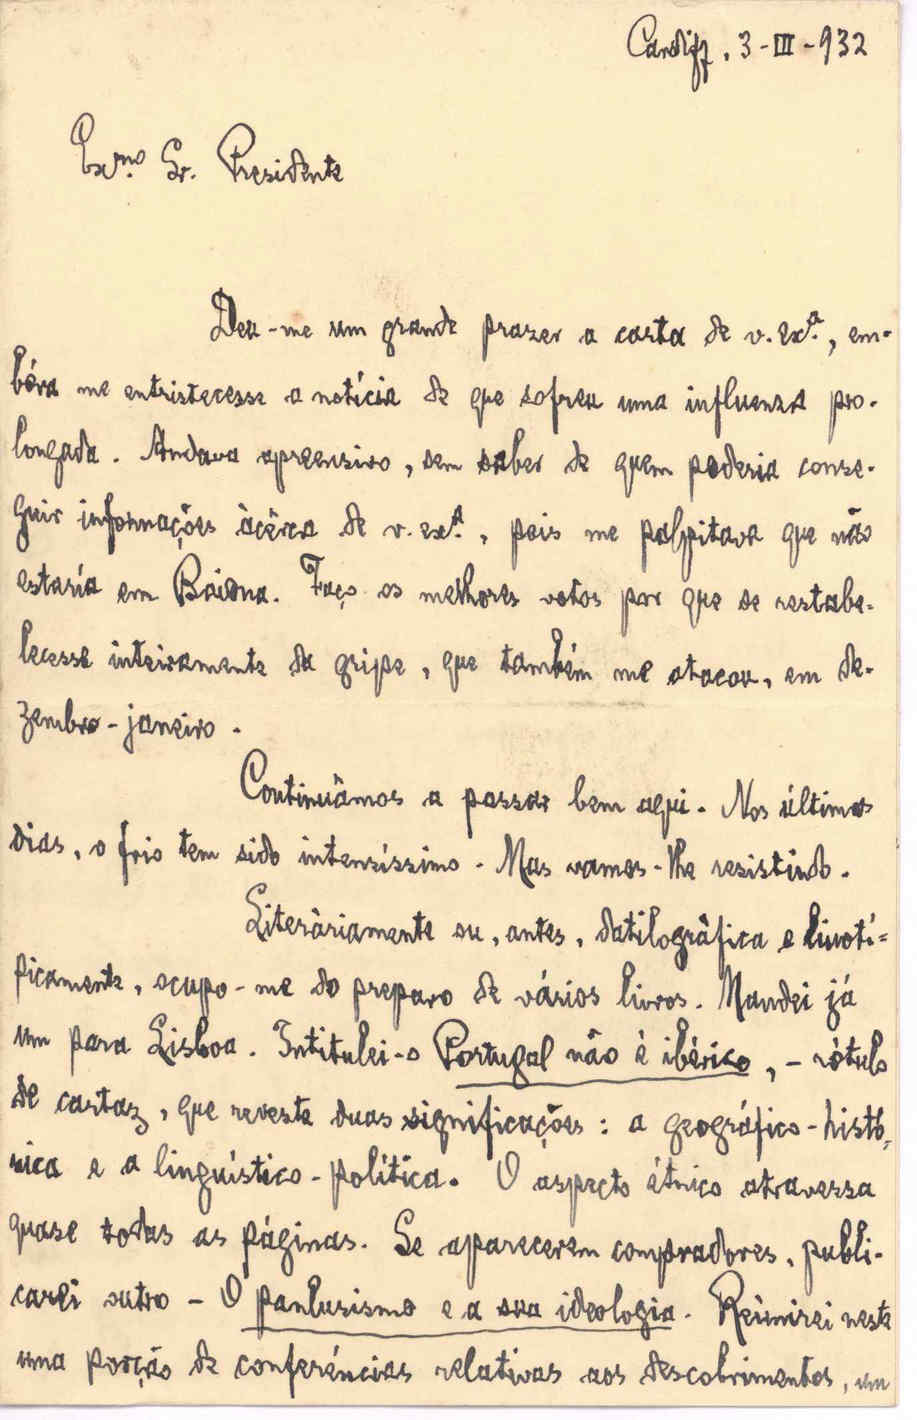 Cardiff, 3-III-932
Exmo. Sr. Presidente
Deu-me um grande prazer a carta de v. exª., em-
bóra me entristecesse a notícia de que sofreu uma influenza pro-
longada. Andava apreensivo, sem saber de quem poderia conse-
guir informações àcêrca de v. exª., pois me palpitava que não
estaría em Baiona. Faço os melhores votos por que se restabe-
lecesse inteiramente da gripe, que também me atacou, em de-
zembro-janeiro.
Continuâmos a passar bem aqui. Nos últimos
dias, o frio tem sido intensíssimo. Mas vamos-lhe resistindo.
Literàriamente ou, antes, datilogràfica e linotí-
picamente, ocupo-me do preparo de vários livros. Mandei já
um para Lisboa. Intitulei-o Portugal não é ibérico, - rótulo
de cartaz, que reveste duas significações: a geográfico-histó-
rica e a linguístico-política. O aspecto étnico atravessa
quase todas as páginas. Se aparecerem compradores, publi-
carei outro - O panlusismo e a sua ideologia. Reünirei neste
uma porção de conferências relativas aos descobrimentos, um